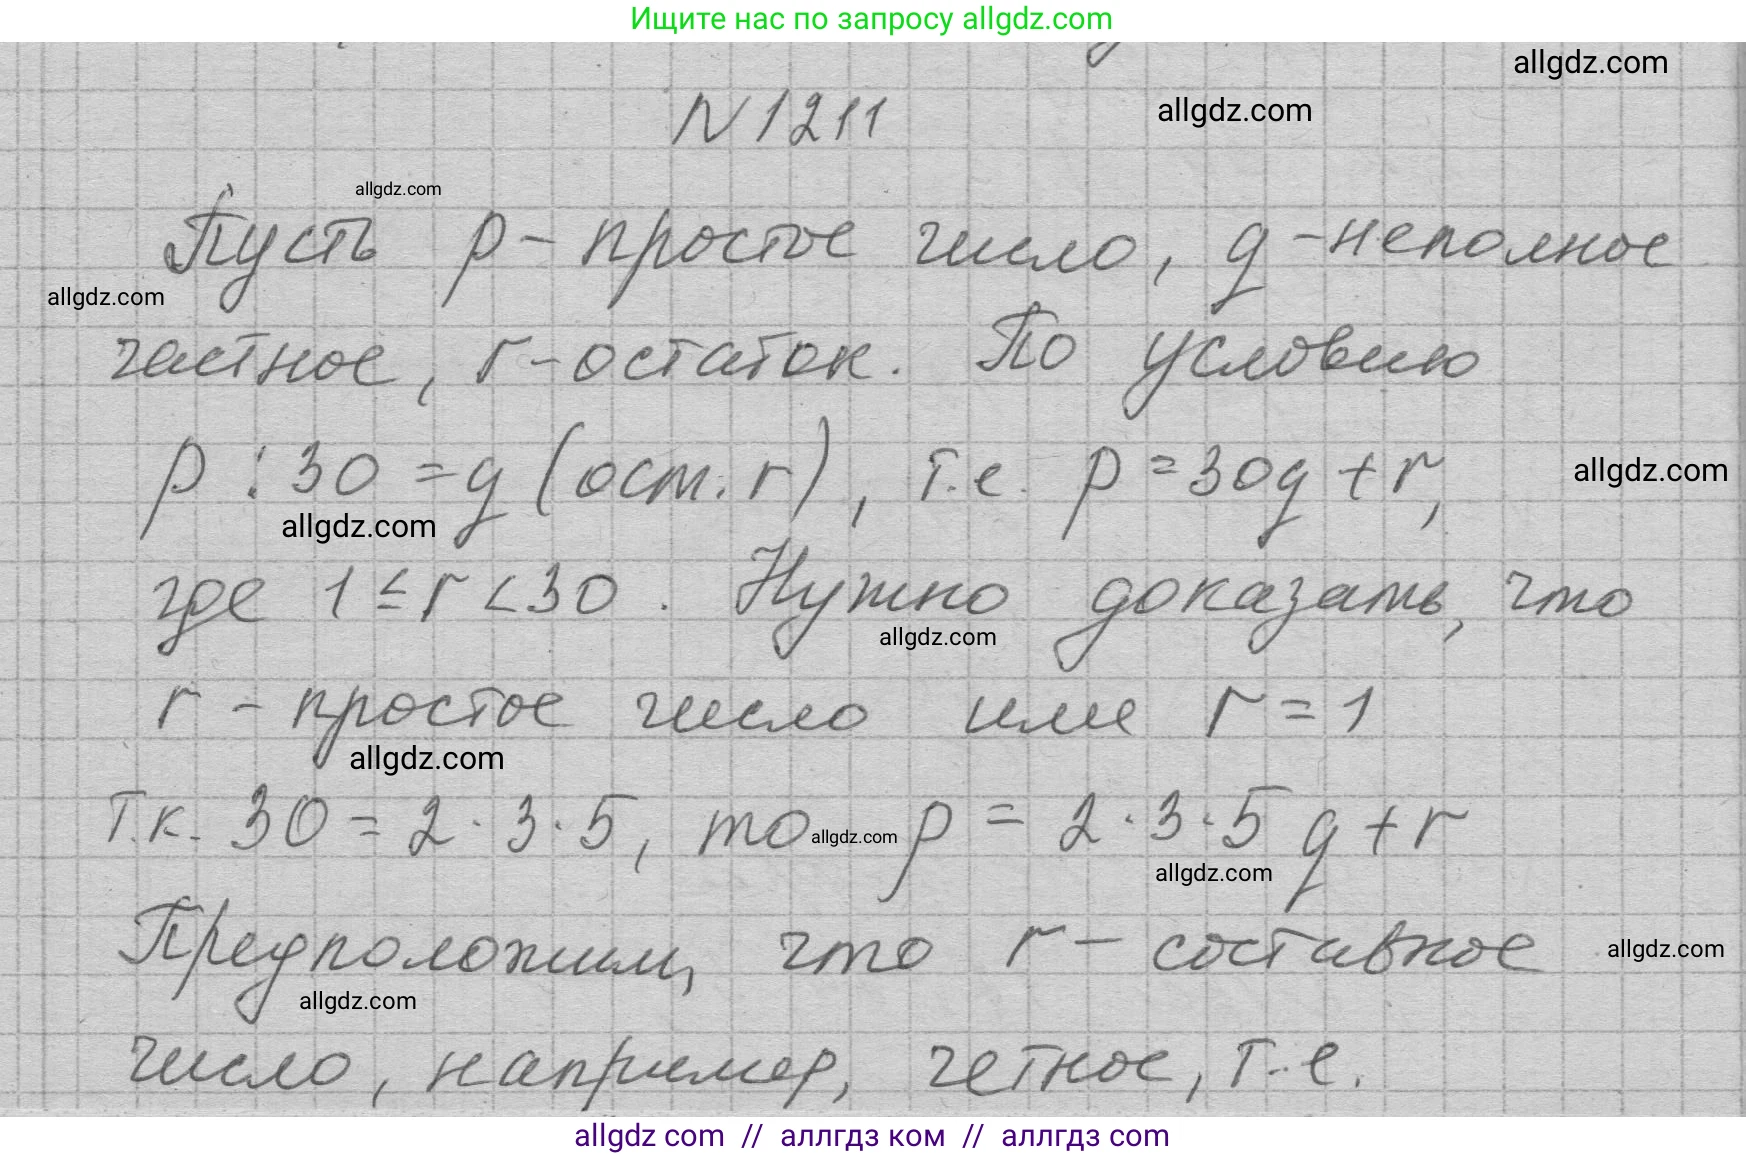 Ищите нас по запросу allgdz.com
allgdz.com
allgdz.com
N 1211
allgdz.com
Пусть p - простое число, q - неполное
allgdz.com
частное, r - остаток. По условию
p : 30 = q (ост. r), т.е. p = 30q + r,
allgdz.com
allgdz.com
где 1 ≤ r < 30. Нужно доказать, что
allgdz.com
r - простое число или r = 1
allgdz.com
Т.к. 30 = 2 · 3 · 5, то p = 2 · 3 · 5 q + r
allgdz.com
allgdz.com
Предположим, что r - составное
allgdz.com
allgdz.com
число, например, четное, т.е.
allgdz com // аллгдз ком // аллгдз com